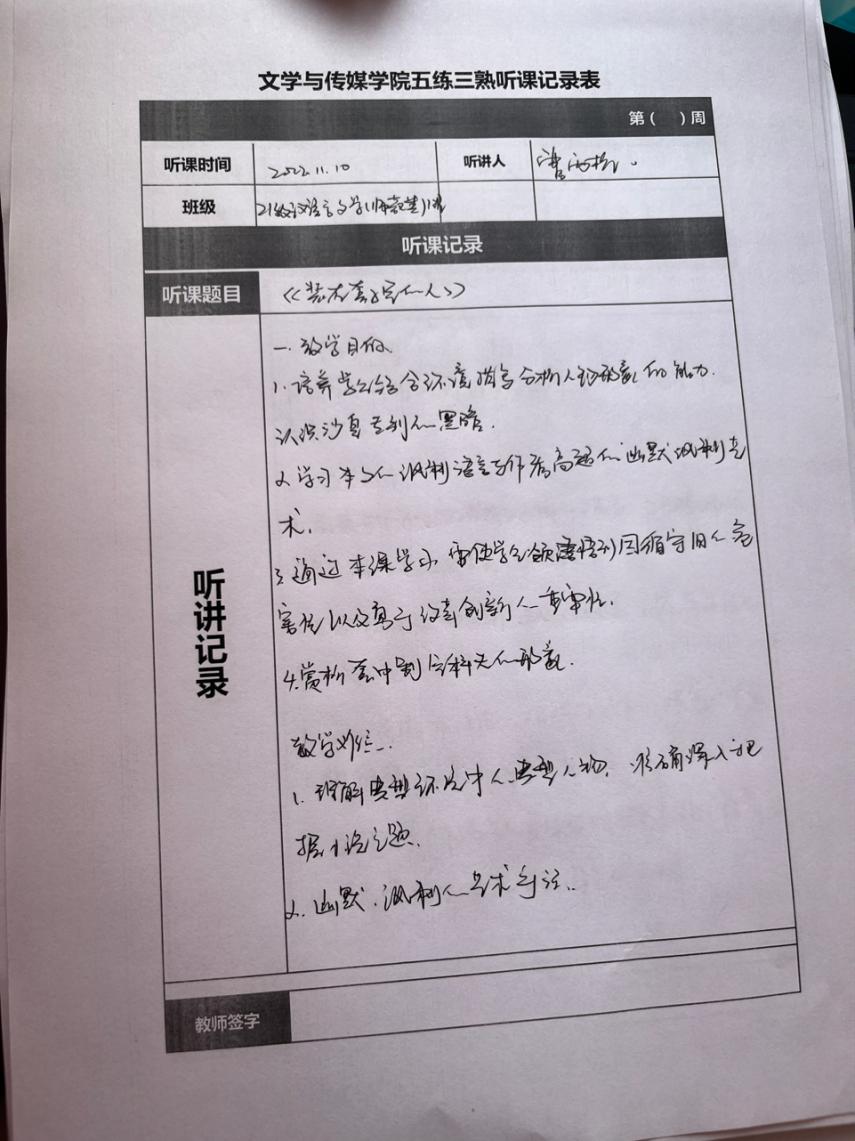 文学与传媒学院五练三熟听课记录表
第（ ）周
听课时间 2022.11.10 听讲人
班级 21级汉语言文学(师范类)1班
听课记录
听课题目 《装在套子里的人》
听讲记录
一.教学目的
1.培养学生结合环境描写分析人物形象的能力.
认识沙皇专制的黑暗.
2.学习本文的讽刺语言与作者高超的幽默讽刺艺
术.
3.通过本课学习,需使学生领悟到因循守旧的危
害性以及勇于改革创新的重要性.
4.赏析套中别里科夫的形象.
教学难点.
1.理解典型环境中的典型人物,准确深入把
握小说主题.
2.幽默.讽刺的艺术手法.
教师签字